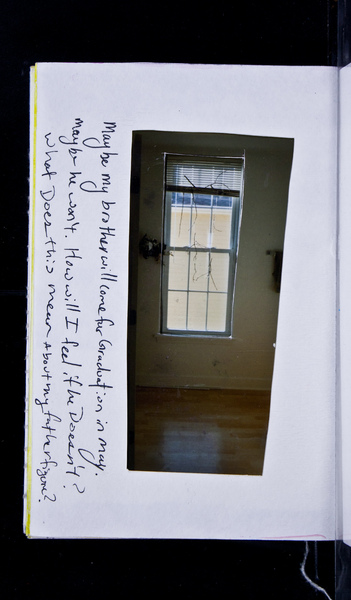 Maybe my brother will come for Graduation in May.
Maybe he won't. How will I feel if he Doesn't?
What Does this mean about my father figure?